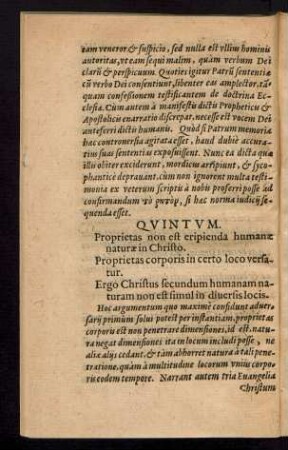 tam veneror & suspicio, sed nulla est vllius hominis
autoritas, vt eam sequi malim, quàm verbum Dei
clarū & perspicuum. Quoties igitur Patrū sententiæ
cū verbo Dei consentiunt, libenter eas amplector, tā-
quam confessionem testificantem de doctrina Ec-
clesia. Cùm autem à manifestis dictis Propheticis &
Apostolicis enarratio discrepat, necesse est vocem Dei
anteferri dictis humanis. Quòd si Patrum memoria
hac controuersia agitata esset, haud dubiè accura-
tius suas sententias exposuissent. Nunc ea dicta quæ
illis obiter exciderunt, mordicùs arripiunt, & syco-
phanticè deprauant, cùm non ignorent multa testi-
monia ex veterum scriptis à nobis proferri posse ad
confirmandum τὸ ῥητὸν, si hæc norma iudicij se-
quenda esset.
QVINTVM.
Proprietas non est eripienda humanæ
naturæ in Christo.
Proprietas corporis in certo loco versa-
tur.
Ergo Christus secundum humanam na-
turam non est simul in diuersis locis.
Hoc argumentum quo maximè confidunt aduer-
sarij primùm solui potest per instantiam, proprietas
corporis est non penetrare dimensiones, id est, natu-
ra negat dimensiones ita in locum includi posse, ne
aliæ alijs cedant, & tàm abhorret natura à tali pene-
tratione, quàm à multitudine locorum vnius corpo-
ris eodem tempore. Narrant autem tria Euangelia
Christum